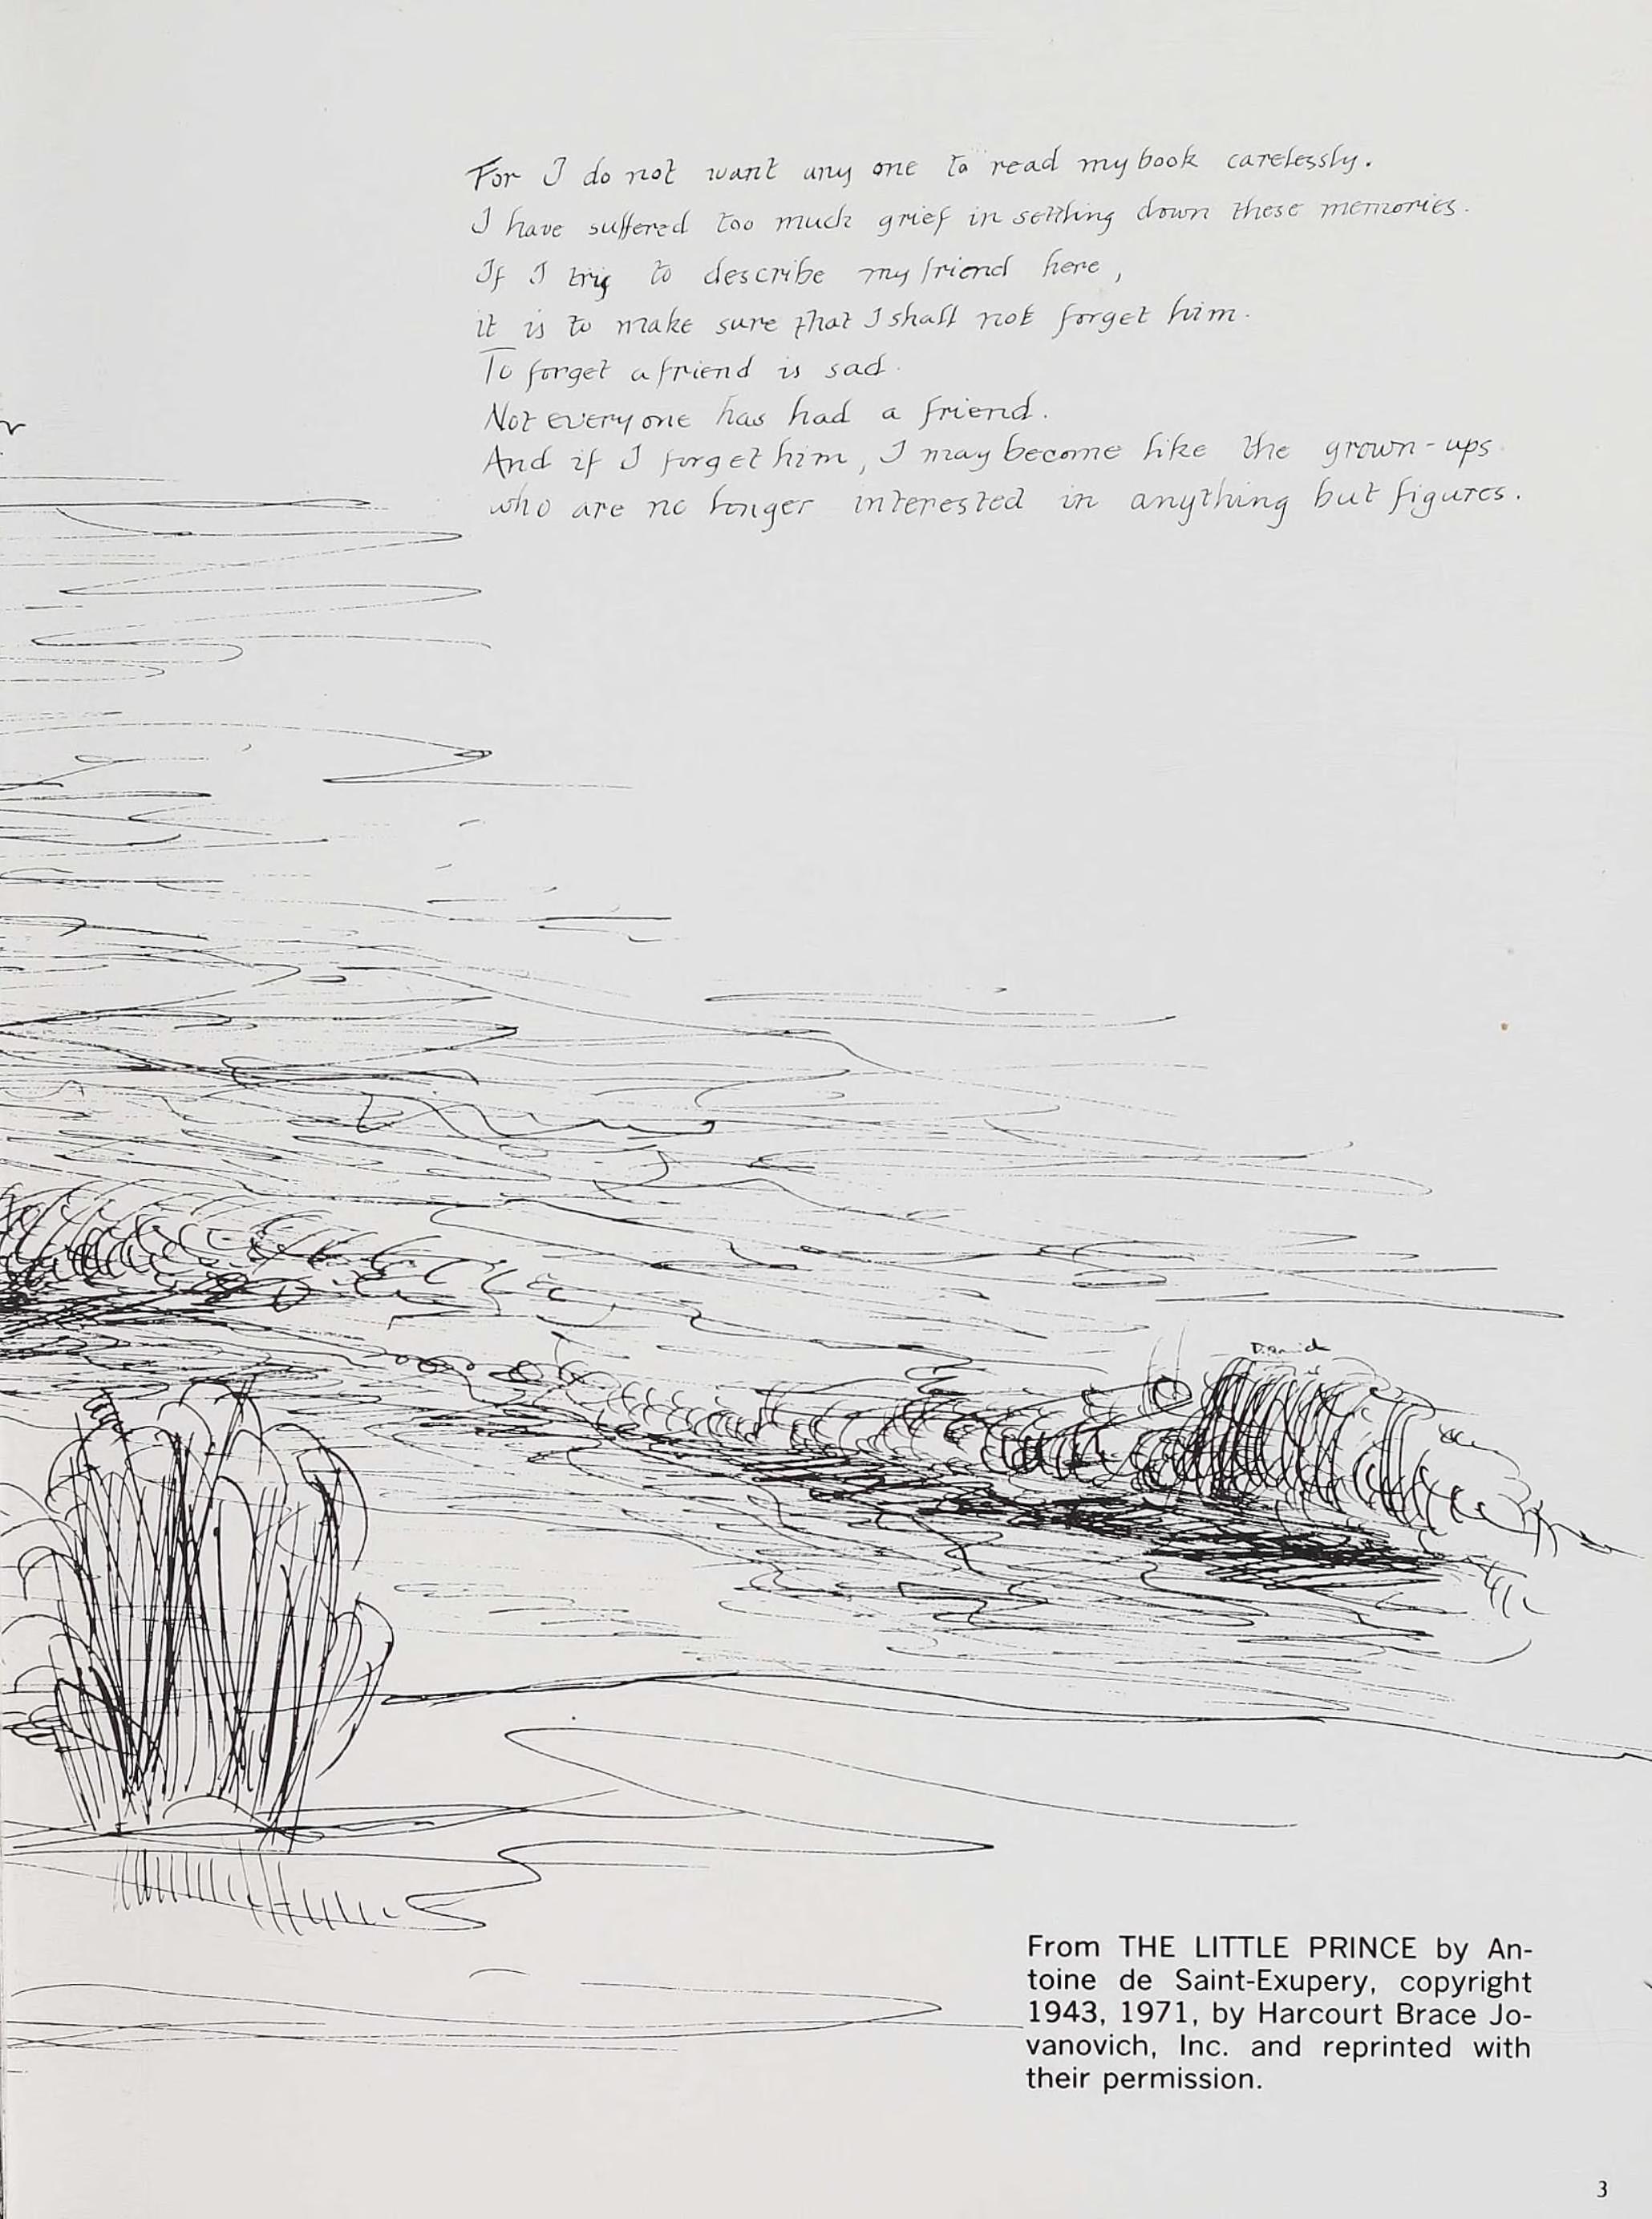 For I do not want any one to read my book carelessly.
I have suffered too much grief in settling down these memories.
If I try to describe my friend here,
it is to make sure that I shall not forget him.
To forget a friend is sad.
Not every one has had a friend.
And if I forget him, I may become like the grown-ups
who are no longer interested in anything but figures.
From THE LITTLE PRINCE by An-
toine de Saint-Exupery, copyright
1943, 1971, by Harcourt Brace Jo-
vanovich, Inc. and reprinted with
their permission.
3